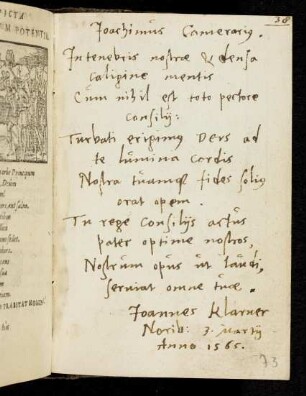 38
Joachimus Camerarius.
In tenebris nostrae & densa
caligine mentis
Cùm nihil est toto pectore
consilij:
Turbati erigimus Deus ad
te lumina cordis
Nostra tuamque fides solius
orat opem.
Tu rege consilijs actus
pater optime nostros,
Nostrum opus ut laudi
serviat omne tuae.
Joannes Klarner
Norib: 3. Martij
Anno 1565.
73
DICTV
M POTENTI
Principum